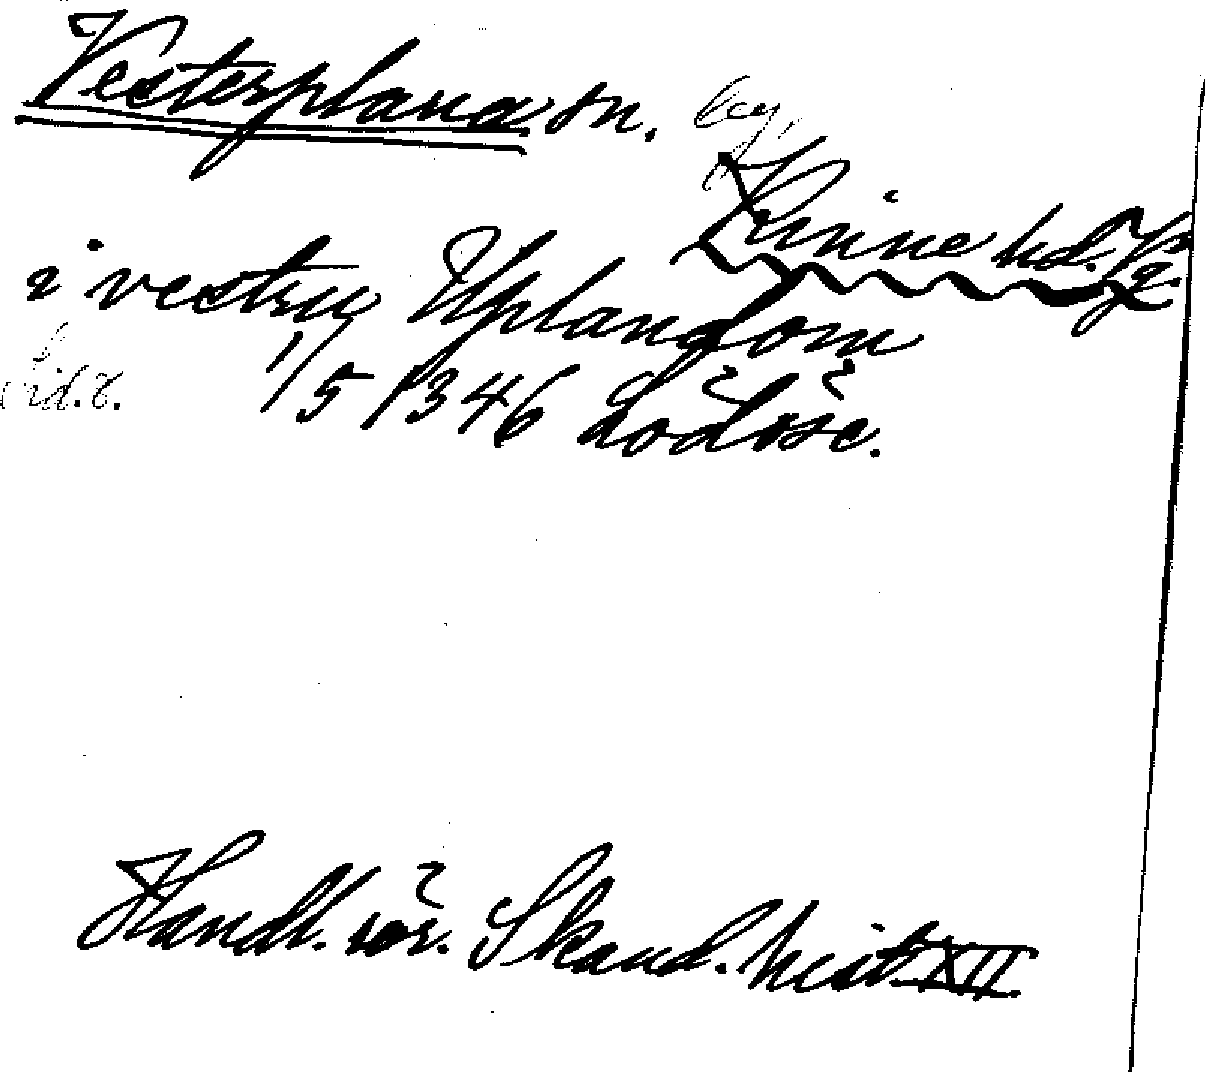 Vesterplana sn. beg.
Kinne hd. Vg.
i vestru Uplandom
1/5 1346 Lödöse.
Handl. rör. Skand. hist. XII